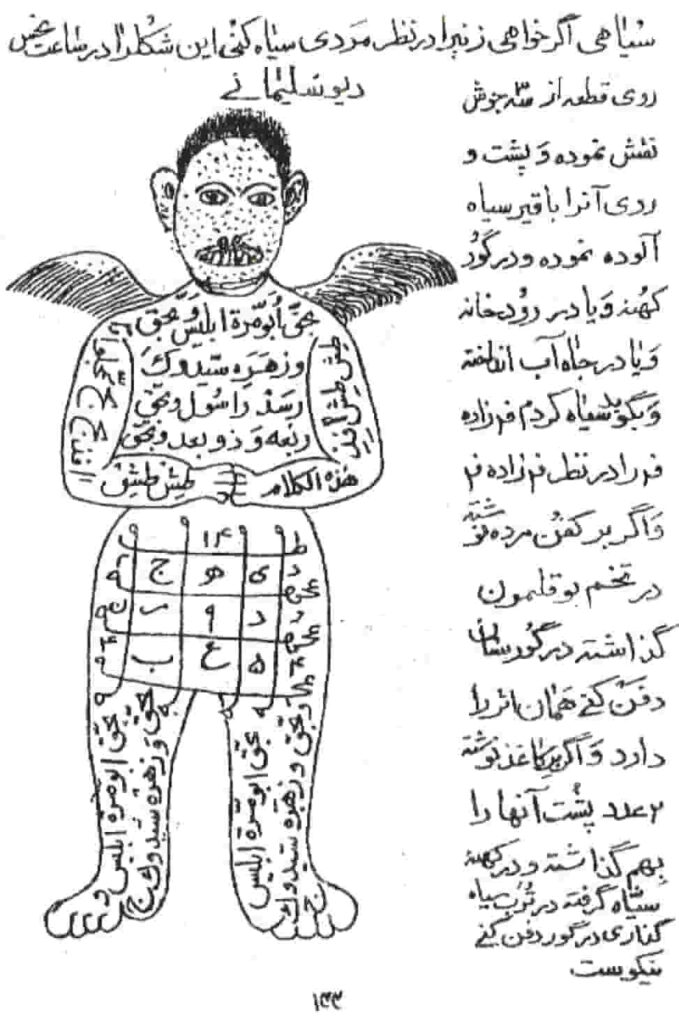 سیاهی اگر خواهی زنیرا در نظر مردی سیاه کنی این شکلرا در ساعت نحس
دیو سلیمانی
روی قطعه از سه جوش
نقش نموده و پشت و
روی آنرا با قیر سیاه
آلوده نموده و در گور
کهنه و یا در رودخانه
و یا در چاه آب انداخته
و بگوید سیاه کردم فم زاده
فم را در نظر فم زاده فم
و اگر بر کفن مرده نوشته
در تخم بوقلمون
گذاشته در گورستان
دفن کنی همان اثر را
دارد و اگر بر کاغذ نوشته
۲ عدد پشت آنها را
بهم گذاشته و در کهنه
سیاه گرفته در ترب سیاه
گذاری در گور دفن کنی
نیکوست
بحق ابومرة ابلیس و بحق
و زهره سیدوك
رسد راسول و بحق
ربعه و ذوبعد و بحق
هذه الکلام
طش طشق
۱۴
ج ه ی
ر و د
ب ع ه
بحق ابو مرة ابلیس
و زهرة سیدوك
بحق ابو مرة ابلیس
و زهرة سیدوك
۱۳۳